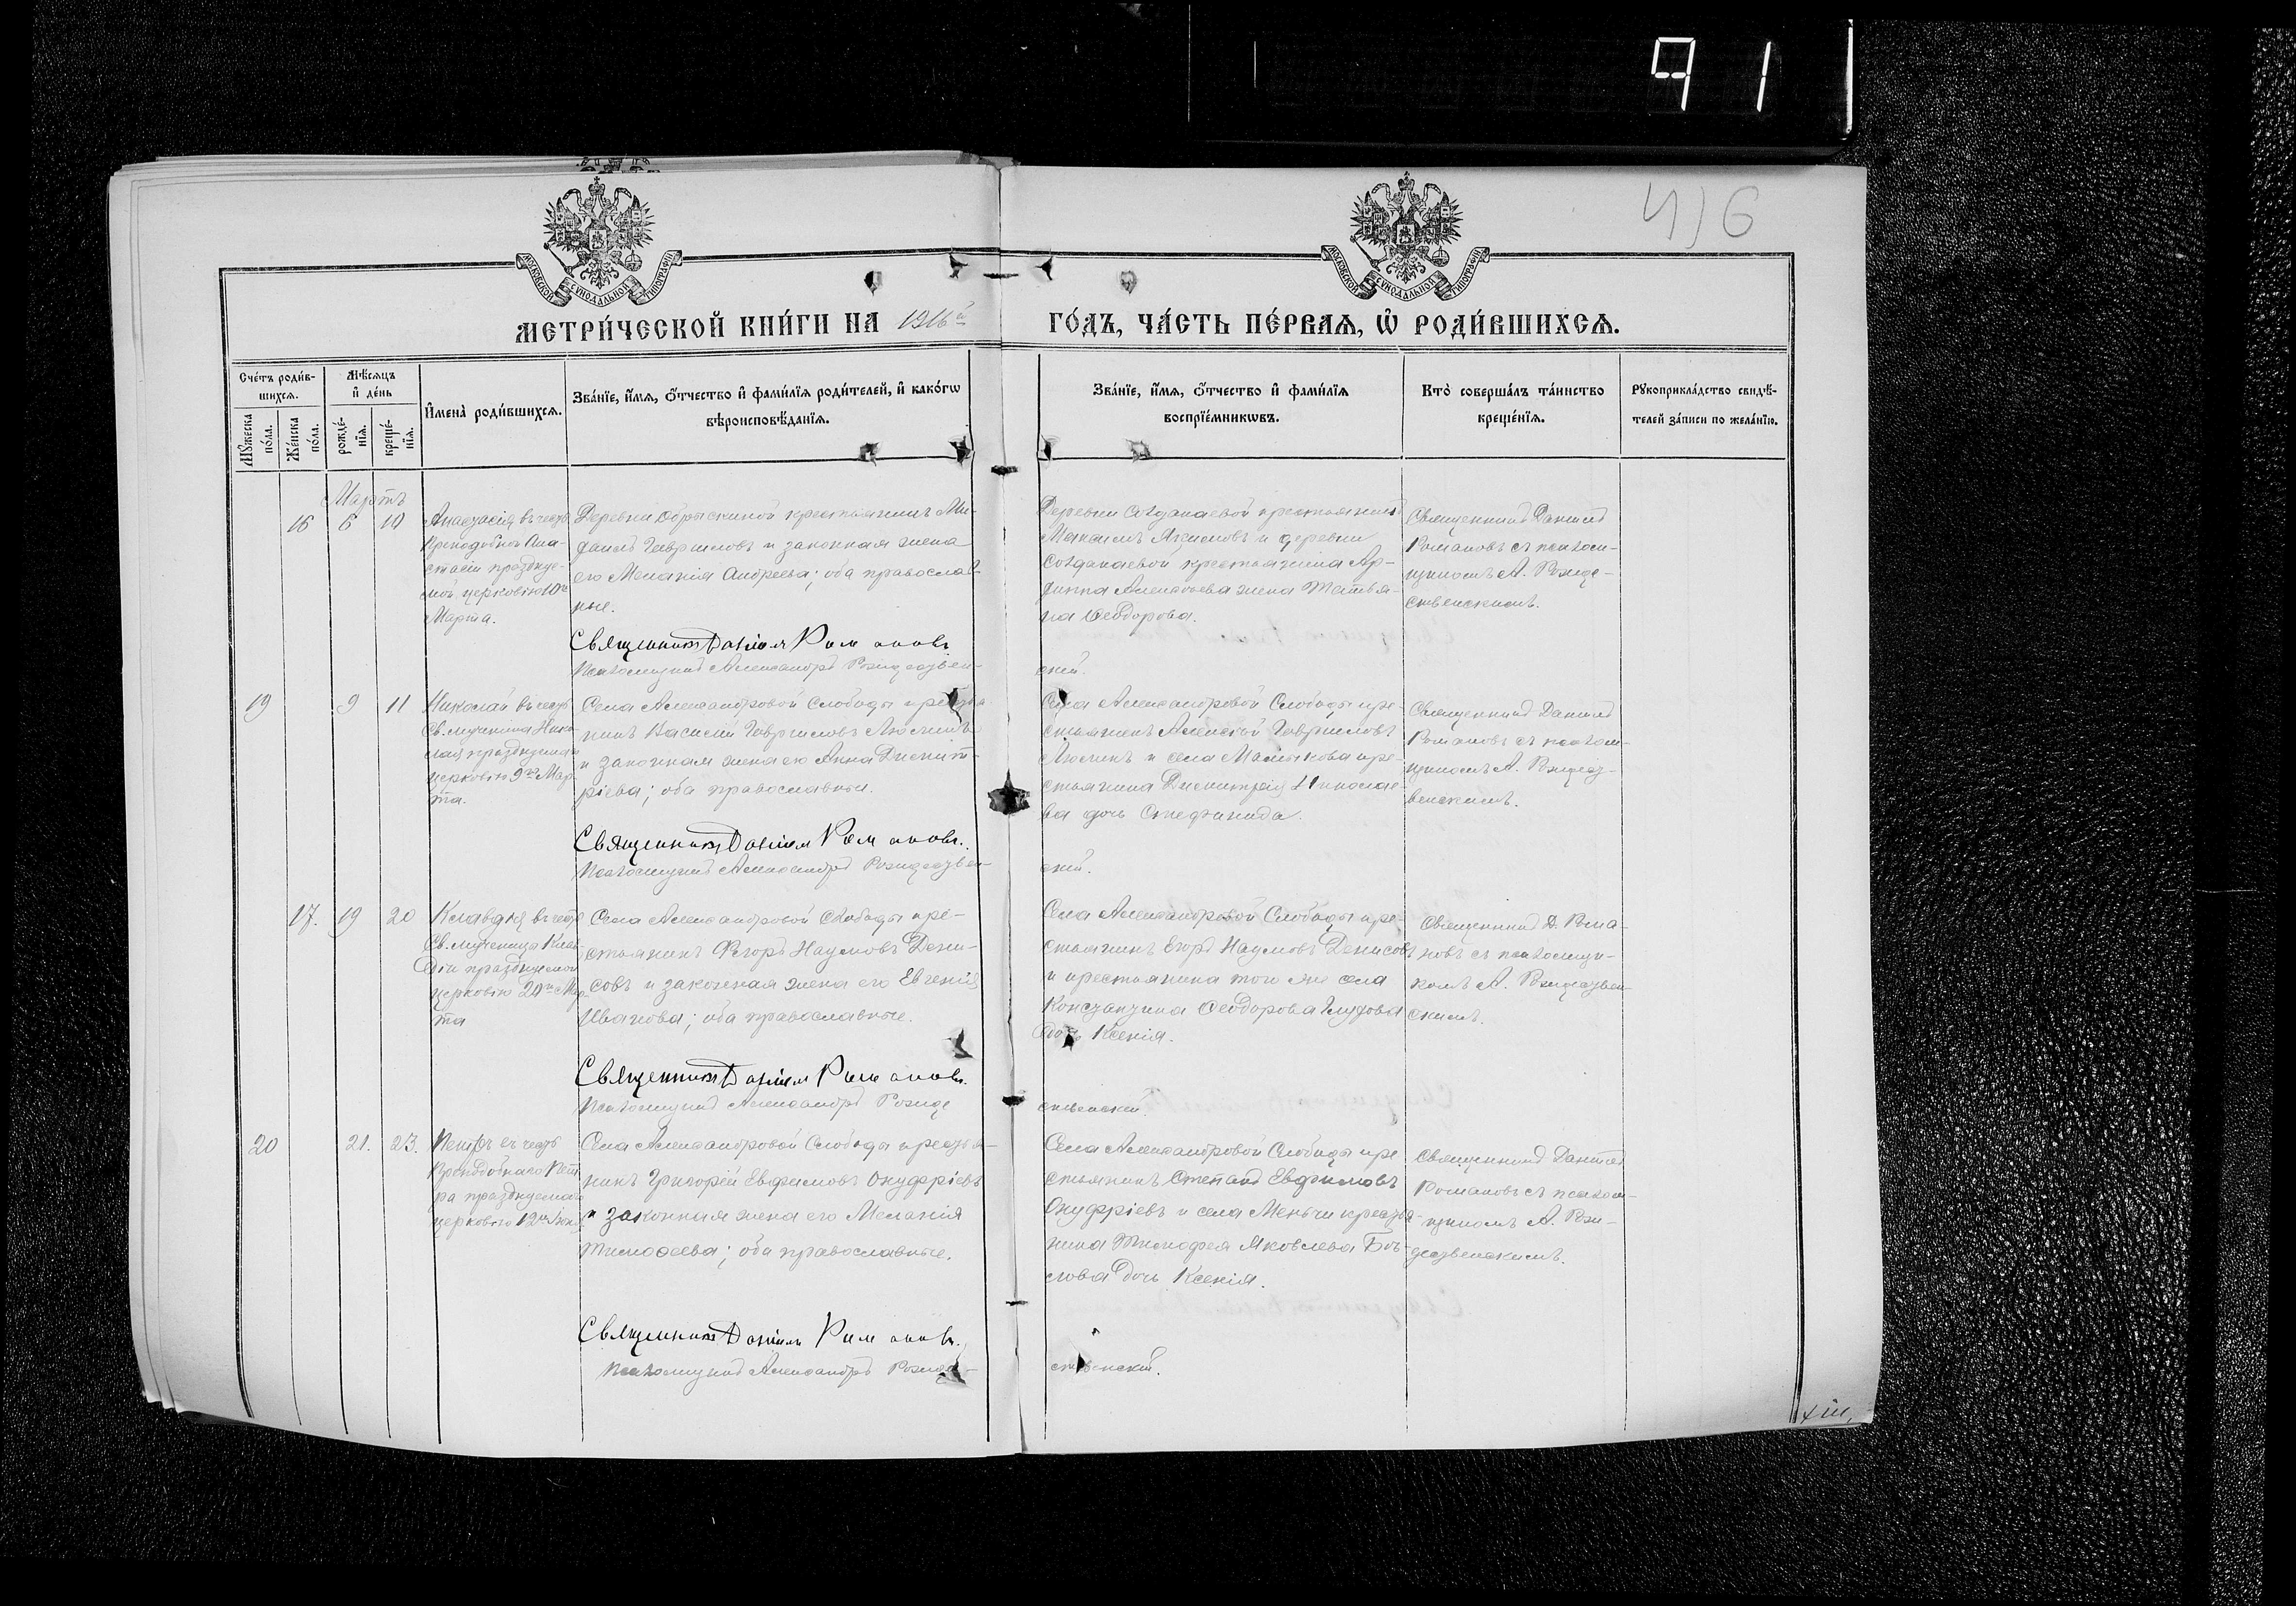 91
416
МОСКОВСКОЙ СѴНОДАЛЬНОЙ ТИПОГРАФІИ
МОСКОВСКОЙ СѴНОДАЛЬНОЙ ТИПОГРАФІИ
МЕТРИ́ЧЕСКОЙ КНИ́ГИ НА 1916й
ГО́ДЪ, ЧА́СТЬ ПЕ́РВАЯ, Ѡ҆ РОДИ́ВШИХСЯ.
Сче́тъ роди́в-
шихся.
Мꙋ́жеска по́ла.
Же́нска по́ла.
Мѣ́сяцъ и҆ де́нь
рожде́-
нїя.
креще́-
нїя.
И҆мена̀ роди́вшихся.
Зва́нїе, и҆́мя, ѻ҆́тчество и҆ фами́лїя роди́телей, и҆ како́гѡ
вѣроисповѣ́данїя.
Зва́нїе, и҆́мя, ѻ҆́тчество и҆ фами́лїя
воспрїе́мникѡвъ.
Кто̀ соверша́лъ та́инство
креще́нїя.
Рꙋкоприкла́дство свидѣ́-
телей за́писи по жела́нїю.
Мартъ
16 6 10
Анастасія въ честь
Преподобной Ана-
стасіи праздные-
мой церковію 10го
Марта.
Деревни крестьянинъ
Гавриловъ и законная жена
его Меланія Андреева; оба православ-
ные.
Священникъ Даніилъ Романовъ
Псаломщикъ Александръ Рождествен-
скій.
Деревни крестьянинъ
Максимъ и деревни
крестьянина
жена Татья-
на Ѳеодорова.
Священникъ Даніилъ
Романовъ съ псалом-
щикомъ А. Рожде-
ственскимъ.
19 9 11
Николай въ честь
Св. мученика Нико-
лая празднуемаго
церковію 9го Мар-
та.
Села Александровой Слободы крестья-
нинъ Василій Гавриловъ
и законная жена его Анна Димит-
ріева; оба православные.
Священникъ Даніилъ Романовъ.
Псаломщикъ Александръ Рождествен-
скій.
Села Александровой Слободы кре-
стьянинъ Алексѣй Гавриловъ
и села кре-
стьянина Димитрія Николае-
ва дочь Стефанида.
Священникъ Даніилъ
Романовъ съ псалом-
щикомъ А. Рождест-
венскимъ.
17. 19 20
Клавдія въ честь
Св. мученицы Клав-
діи празднуемой
церковію 20го Мар-
та
Села Александровой Слободы кре-
стьянинъ Ѳеѳоръ Наумовъ Дени-
совъ и законная жена его Евгенія
Иванова; оба православные.
Священникъ Даніилъ Романовъ.
Псаломщикъ Александръ Рожде
ственскій.
Села Александровой Слободы кре-
стьянинъ Егоръ Наумовъ Денисовъ
и крестьянина того же села
Константина Ѳеодорова
дочь Ксенія.
Священникъ Д. Рома-
новъ съ псаломщи-
комъ А. Рождествен-
скимъ.
20 21. 23.
Петръ въ честь
Преподобнаго Пет-
ра празднуемаго
церковію 12го
Села Александровой Слободы крестья-
нинъ Григорій Евфимовъ Онуфріевъ
и законная жена его Меланія
Тимоѳеева; оба православные.
Священникъ Даніилъ Романовъ.
Псаломщикъ Александръ Рожде-
ственскій.
Села Александровой Слободы кре
стьянинъ Степанъ Евфимовъ
Онуфріевъ и села крестья-
нина Тимофея Яковлева
дочь Ксенія.
Священникъ Даніилъ
Романовъ съ псалом-
щикомъ А. Рож-
дественскимъ.